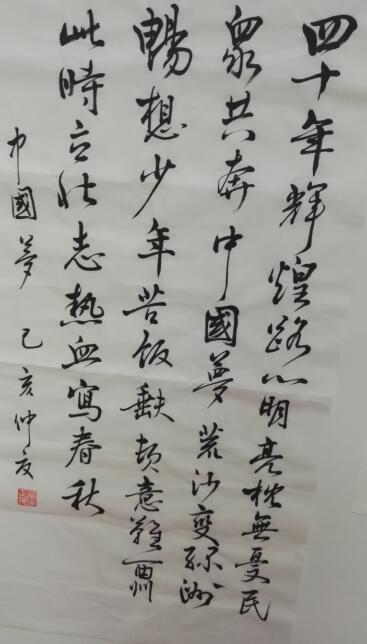 四十年輝煌路心明亮枕無憂民
眾共奔中國夢荒沙變綠洲
暢想少年苦飯缺頓意難酬
此時立壯志熱血寫春秋
中國夢 己亥仲夏